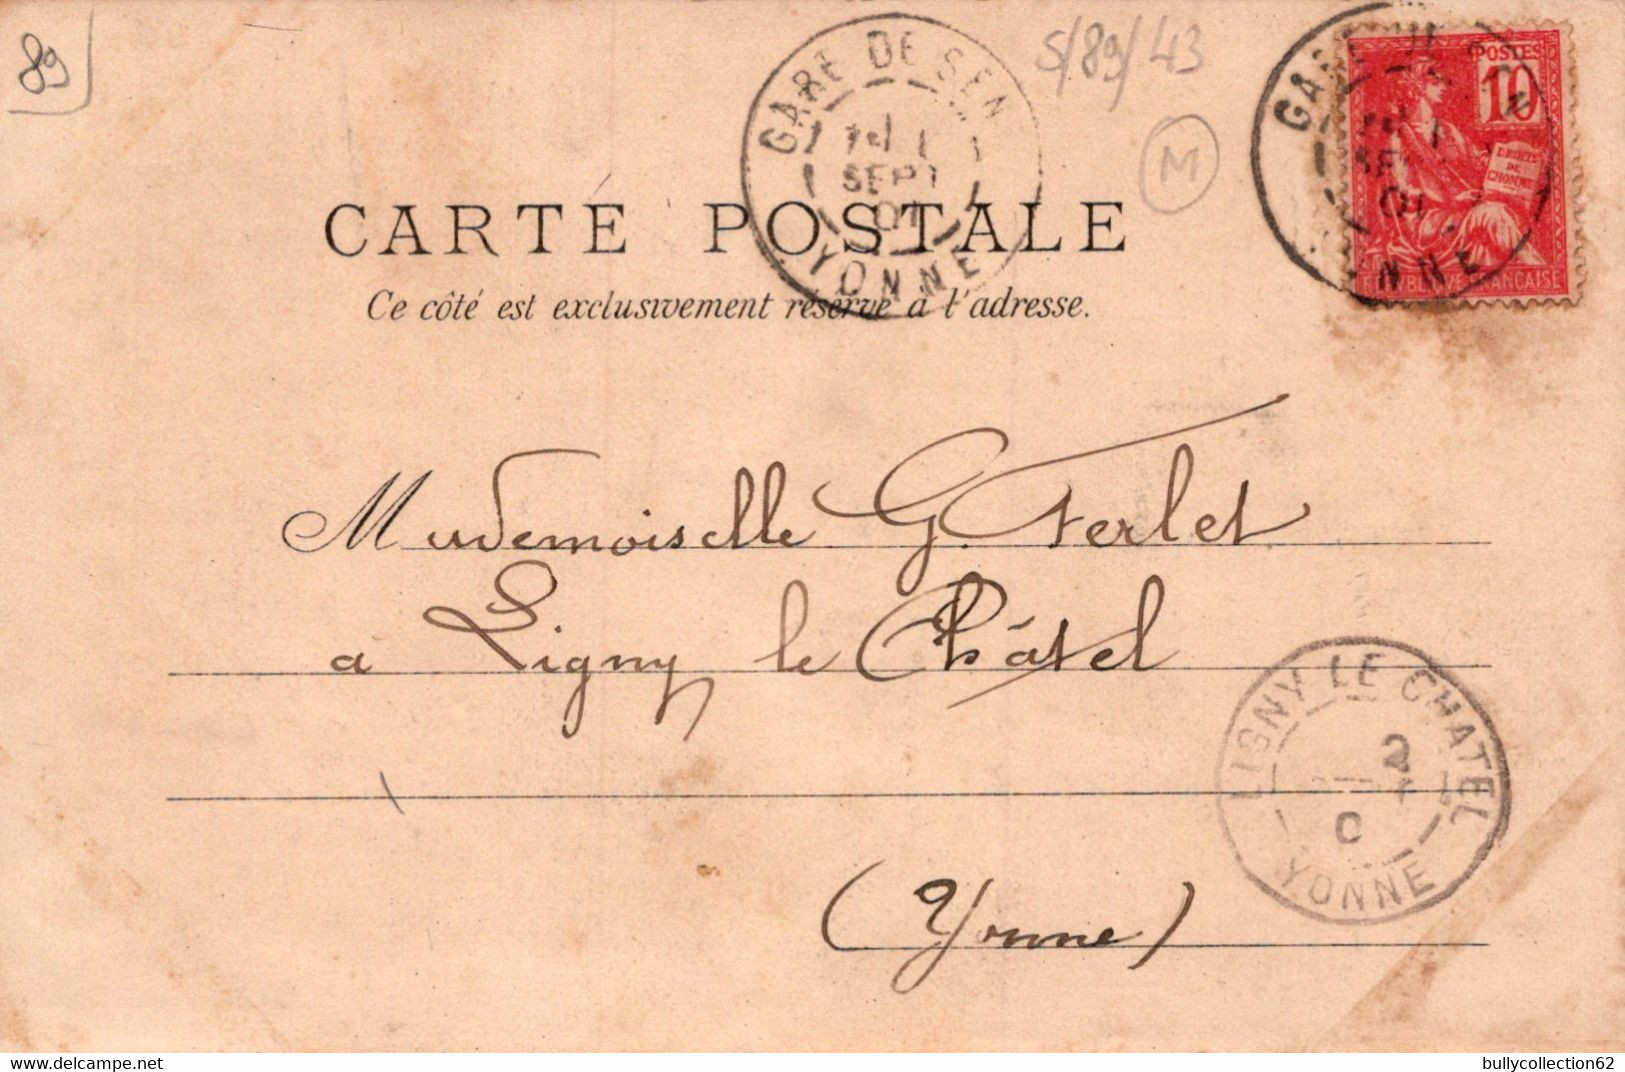 89
S/89/43
M
GARE DE SEN
7H 1
SEPT
01
YONNE
POSTES
10
DROITS
DE
L'HOMME
REPVBLIQVE FRANÇAISE
CARTE POSTALE
Ce côté est exclusivement réservé à l'adresse.
Mademoiselle G. Ferlet
a Ligny le Châtel
LIGNY LE CHATEL
2
0
YONNE
(Yonne)
delcampe.net
bullycollection62